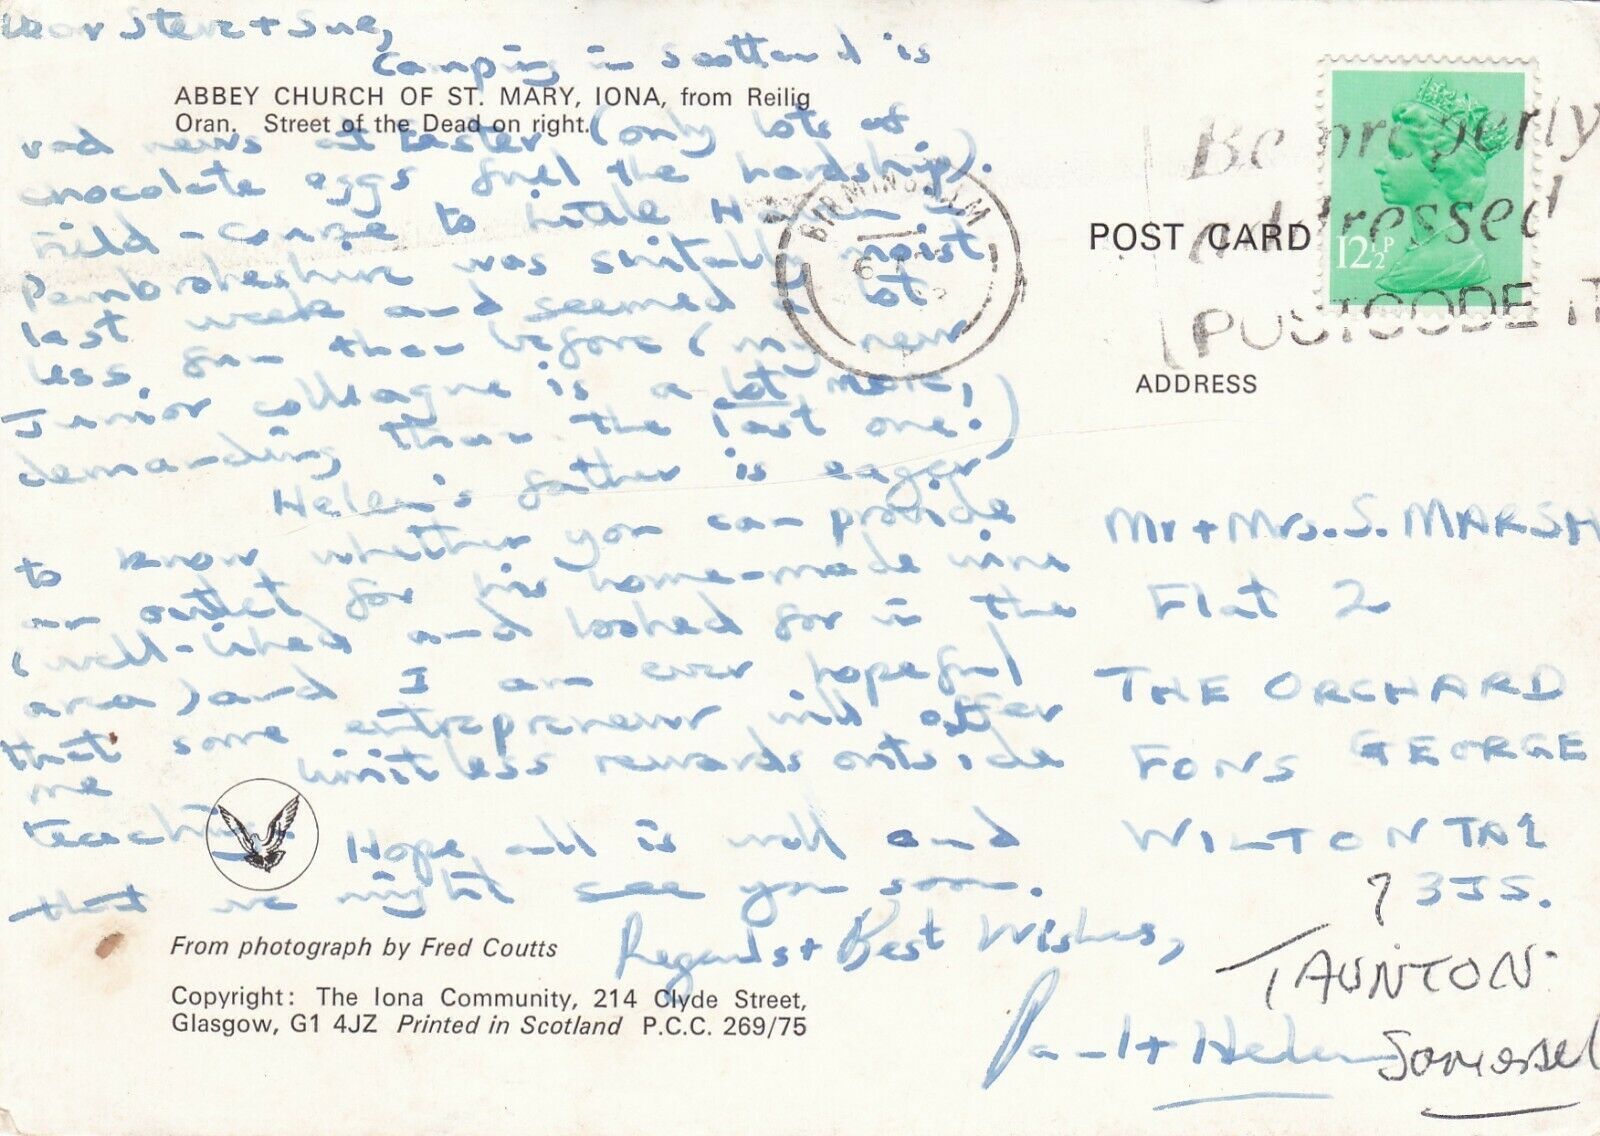 Dear Steve + Sue,
Camping in Scotland is
ABBEY CHURCH OF ST. MARY, IONA, from Reilig
Oran. Street of the Dead on right.
news at Easter (only lots of
chocolate eggs fuel the hardship).
Field-course to Little Haven in
Pembrokeshire was suitably moist
last week and seemed a lot
less fun than before (my new
Junior colleague is a lot more,
demanding than the last one.)
Helen's father is eager
to know whether you can provide
an outlet for his home-made wine
(well-liked and looked for in the
area) and I am ever hopeful
that some entrepreneur will offer
me limitless rewards outside
teaching.
Hope all is well and
that we might see you soon.
Regards + Best Wishes,
Paul + Helen
From photograph by Fred Coutts
Copyright: The Iona Community, 214 Clyde Street,
Glasgow, G1 4JZ Printed in Scotland P.C.C. 269/75
BIRMINGHAM
12½P
Be properly
addressed
POSTCODE IT
POST CARD
ADDRESS
Mr + Mrs. S. MARSH
Flat 2
THE ORCHARD
FONS GEORGE
WILTON TA1
3JS.
TAUNTON
Somerset